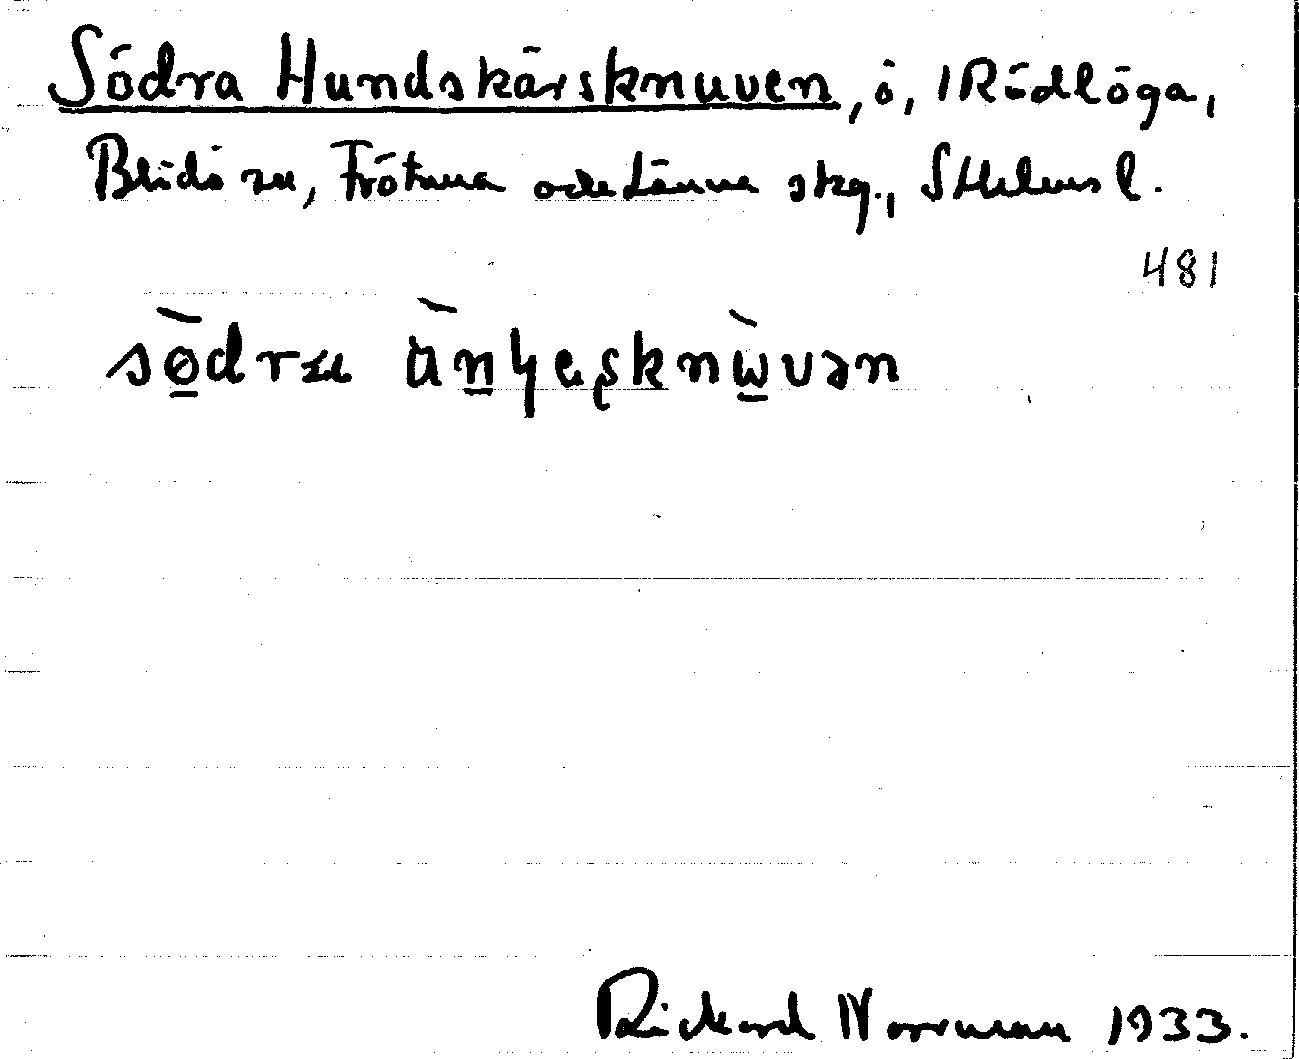 Södra Hundskärsknuven, ö, i Rödlöga,
Blidö sn, Frötuna och Länna skg., Sthlms l.
481
sødra
Rickard Norrman 1933.